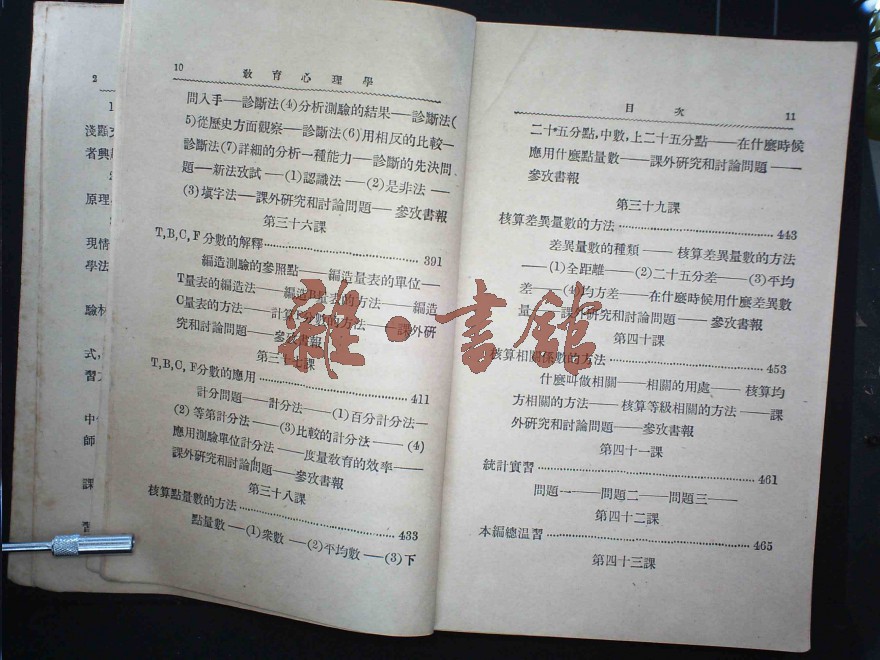 10 教育心理學
問入手——診斷法(4)分析測驗的結果——診斷法(
5)從歷史方面觀察——診斷法(6)用相反的比較—
診斷法(7)詳細的分析一種能力——診斷的先決問
題——新法攷試——(1)認識法——(2)是非法——
(3)填字法——課外硏究和討論問題——參攷書報
第三十六課
T,B,C,F分數的解釋……391
編造測驗的參照點——編造量表的單位—
T量表的編造法——編造B量表的方法——編造
C量表的方法——計算F分數的方法——課外硏
究和討論問題——參攷書報
第三十七課
T,B,C,F分數的應用……411
計分問題——計分法——(1)百分計分法—
(2)等第計分法——(3)比較的計分法——(4)
應用測驗單位計分法——度量敎育的效率——
課外硏究和討論問題——參攷書報
第三十八課
核算點量數的方法……433
點量數——(1)衆數——(2)平均數——(3)下
目次 11
二十五分點,中數,上二十五分點——在什麼時候
應用什麼點量數——課外硏究和討論問題——
參攷書報
第三十九課
核算差異量數的方法……443
差異量數的種類——核算差異量數的方法
——(1)全距離——(2)二十五分差——(3)平均
差——(4)均方差——在什麼時候用什麼差異數
量——課外硏究和討論問題——參攷書報
第四十課
核算相關係數的方法……453
什麼叫做相關——相關的用處——核算均
方相關的方法——核算等級相關的方法——課
外硏究和討論問題——參攷書報
第四十一課
統計實習……461
問題一——問題二——問題三——
第四十二課
本編總温習……465
第四十三課
雜·書館
2
1
淺
者興
原理
現情
學法
驗材
式,
習
中
師
課